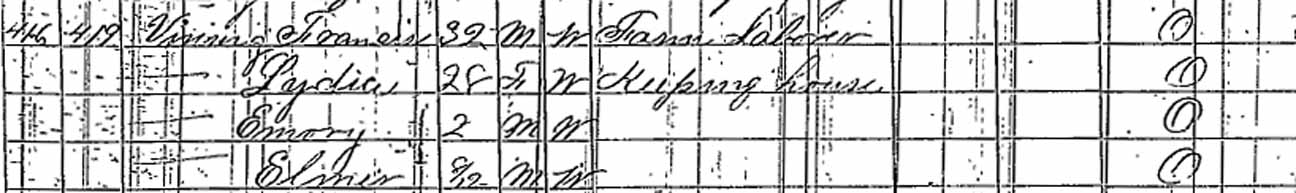 416 419 Vining Francis 32 M W Farm Laborer O
— Lydia 28 F W Keeping house O
— Emory 2 M W O
— Elmer 8/12 M W O